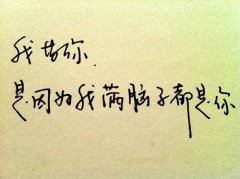 我
是因为我满脑子都是你